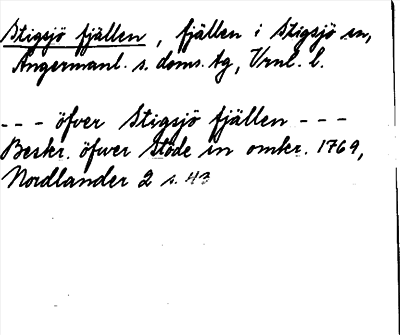 Stigsjö fjällen, fjällen i Stigsjö sn,
Ångermanl. s. doms. tg, Vrnl. l.
- - - öfver Stigsjö fjällen - - -
Beskr. öfwer Stöde sn omkr. 1769,
Nordlander 2 s. 43